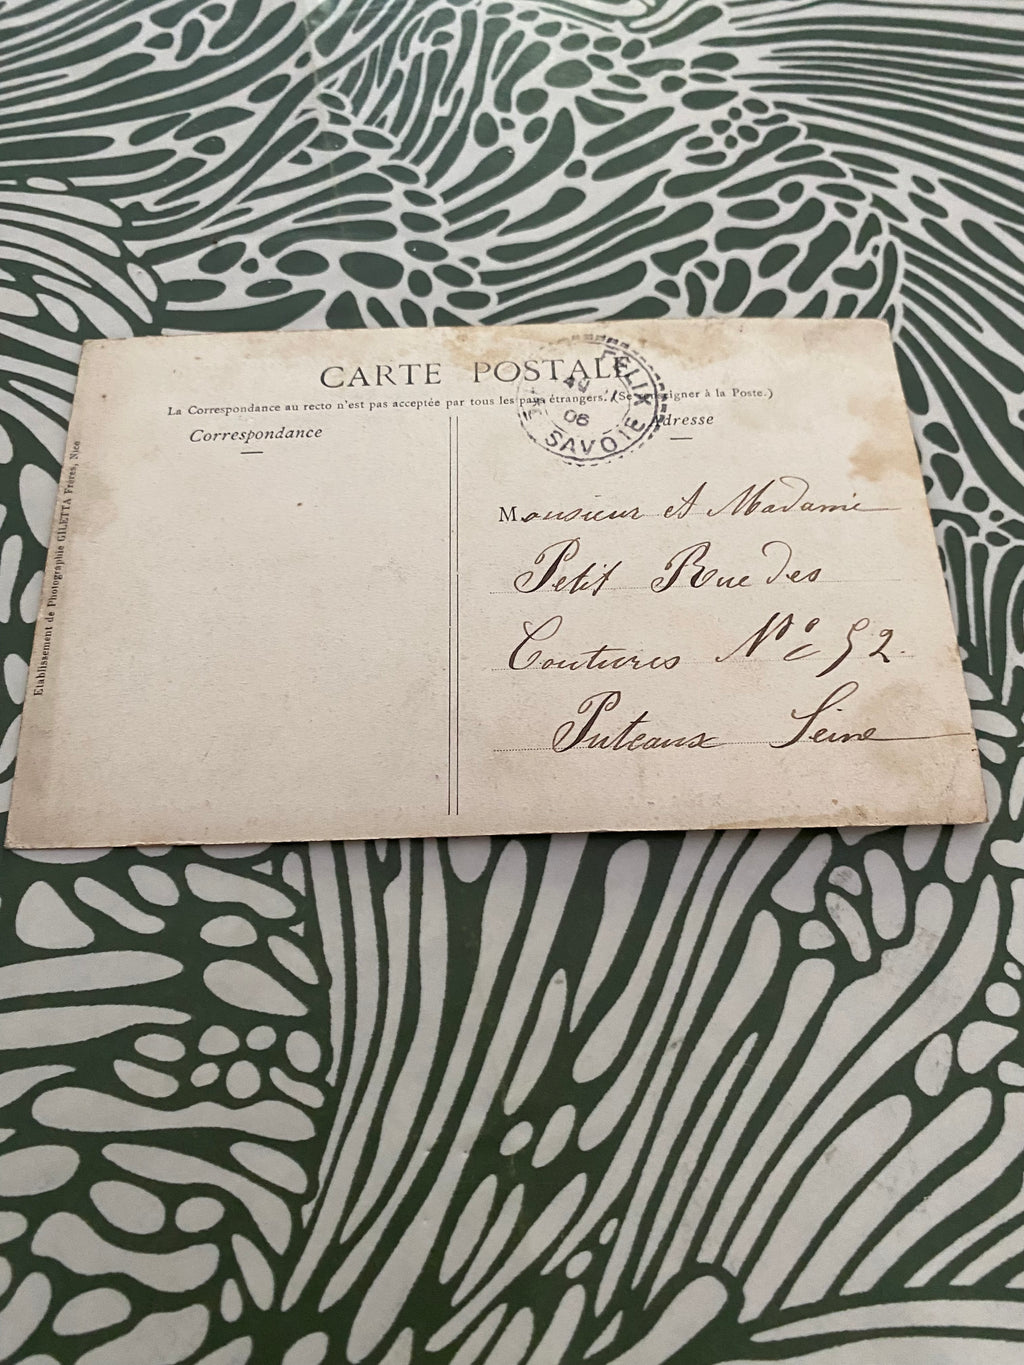 CARTE POSTALE
La Correspondance au recto n'est pas acceptée par tous les pays étrangers. (Se renseigner à la Poste.)
Correspondance
Adresse
FELIX
06
SAVOIE
Monsieur et Madame
Petit Rue des
Coutures No 52.
Puteaux Seine
Etablissement de Photographie GILETTA Frères, Nice